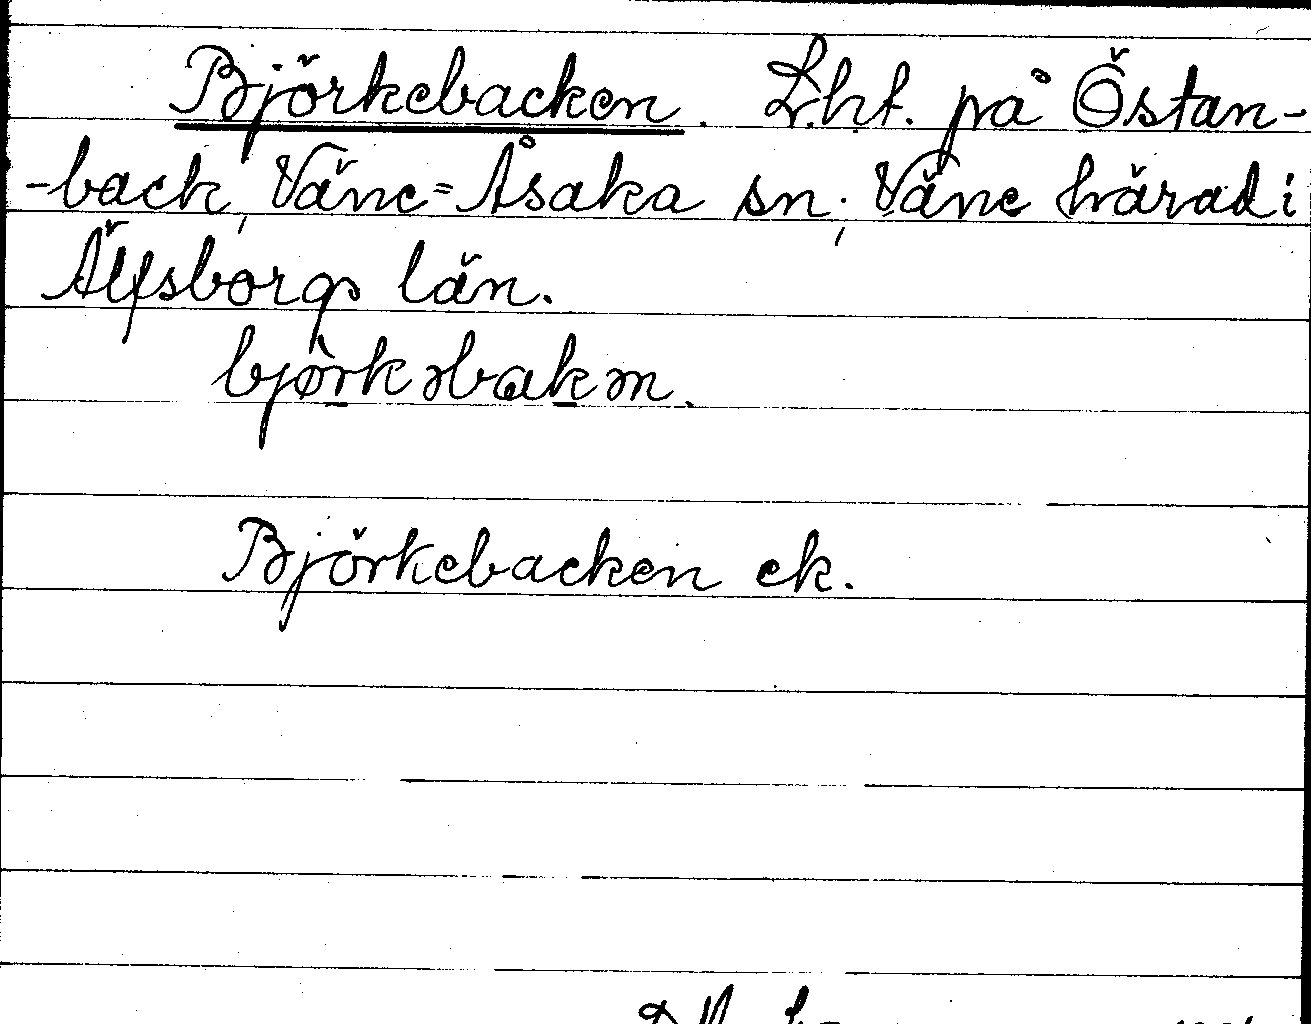 Björkebacken. Lht. på Östan-
-back, Väne=Åsaka sn; Väne härad i
Älfsborgs län.
björkəbakən.
Björkebacken ek.